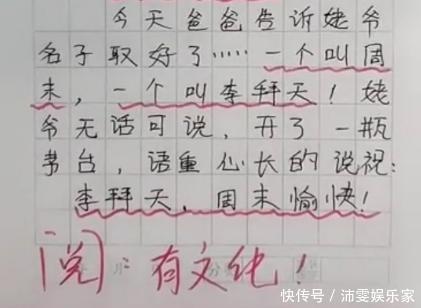 今天爸爸告诉姥爷
名子取好了……一个叫周
末，一个叫李拜天！姥
爷无话可说，开了一瓶
茅台，语重心长的说祝：
李拜天，周末愉快！
阅：有文化！
快传号/沛雯娱乐家